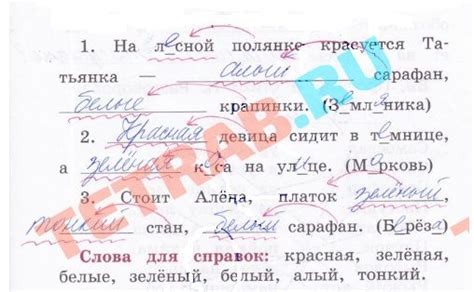 1. На лесной полянке красуется Та-
тьянка — алый сарафан,
белые крапинки. (Земляника)
2. Красная девица сидит в темнице,
а зелёная коса на улице. (Морковь)
3. Стоит Алёна, платок зелёный,
тонкий стан, белый сарафан. (Берёза)
Слова для справок: красная, зелёная,
белые, зелёный, белый, алый, тонкий.
TETRAB.RU